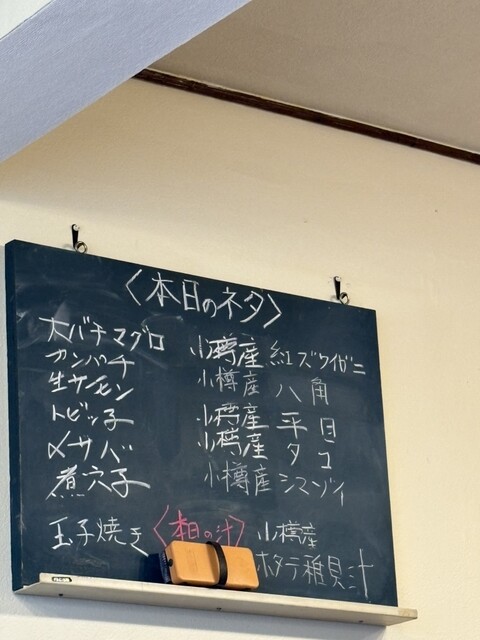 〈本日のネタ〉
大バチマグロ
カンパチ
生サーモン
トビッ子
〆サバ
煮穴子
玉子焼き
小樽産 紅ズワイガニ
小樽産 八角
小樽産 平目
小樽産 タコ
小樽産 シマゾイ
〈本日の汁〉
小樽産
ホタテ稚貝汁